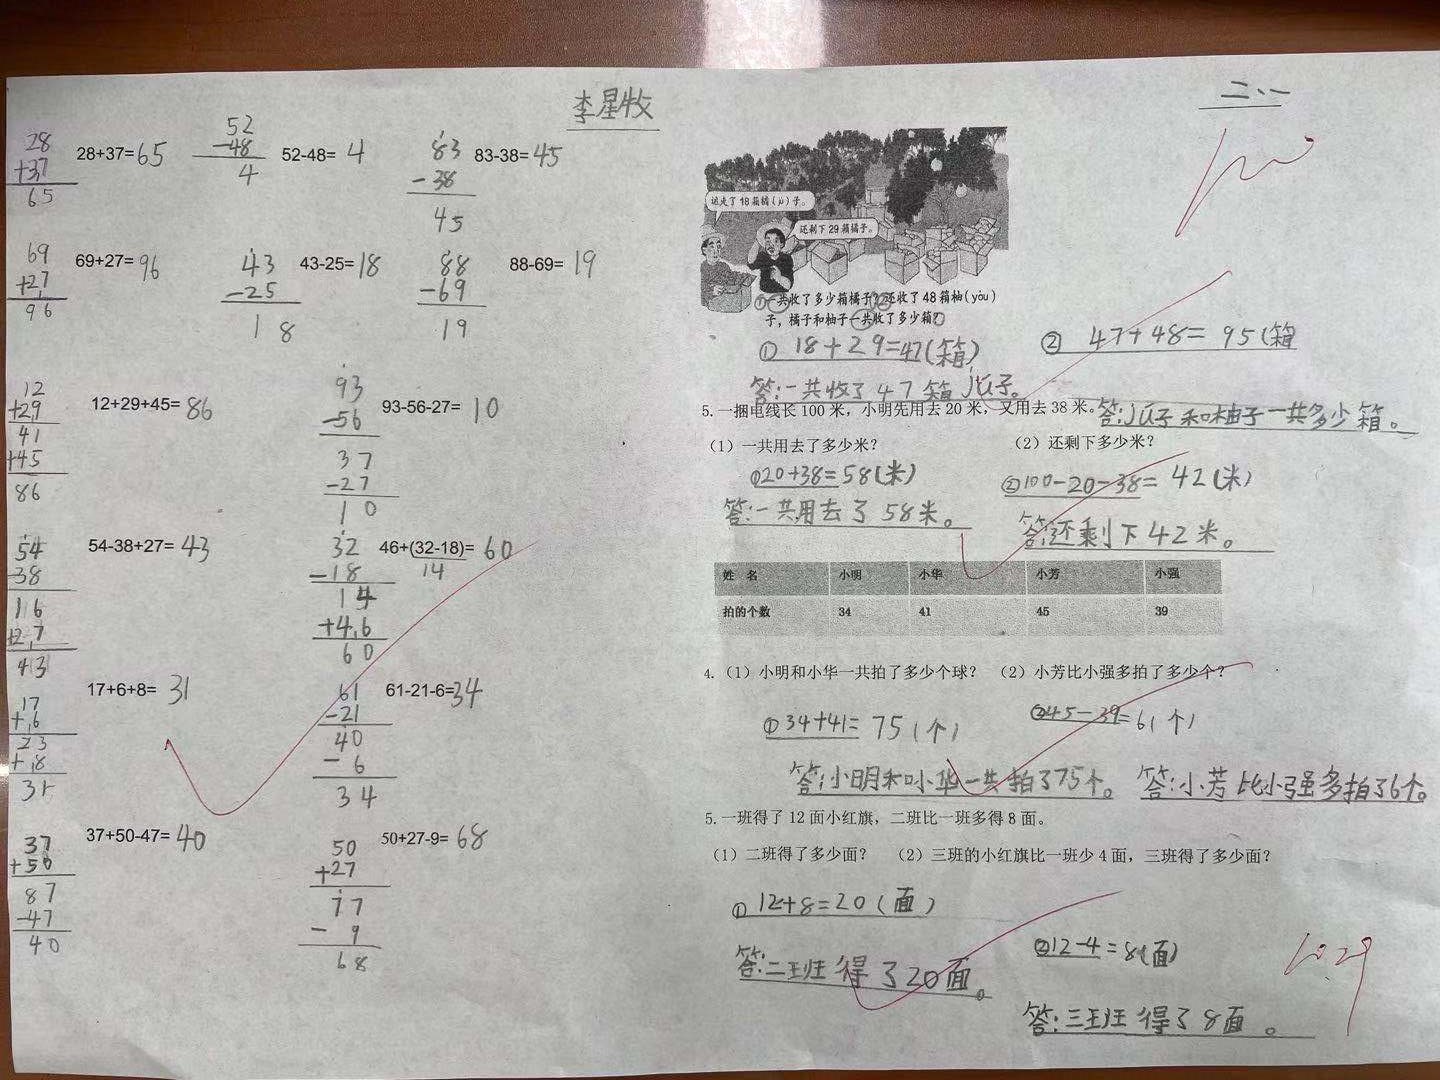 李星牧
二、一
28
+37
65
28+37=65
52
-48
4
52-48= 4
83
-38
45
83-38=45
69
+27
96
69+27=96
43
-25
18
43-25=18
88
-69
19
88-69=19
12
+29
41
+45
86
12+29+45=86
93
-56
37
-27
10
93-56-27= 10
54
-38
16
+27
43
54-38+27= 43
32
-18
14
+46
60
46+(32-18)= 60
14
17
+6
23
+8
31
17+6+8= 31
61
-21
40
-6
34
61-21-6=34
37
+50
87
-47
40
37+50-47= 40
50
+27
77
-9
68
50+27-9= 68
100
运走了18箱橘(jú)子。
还剩下29箱橘子。
①一共收了多少箱橘子?②还收了48箱柚(yòu)
子，橘子和柚子一共收了多少箱?
① 18+29=47(箱)
② 47+48= 95(箱
答:一共收了47箱jú子。
5.一捆电线长100米，小明先用去20米，又用去38米。
答:jú子和柚子一共多少箱。
(1)一共用去了多少米? (2)还剩下多少米?
①20+38=58(米)
②100-20-38= 42(米)
答:一共用去了58米。
答:还剩下42米。
姓 名 小明 小华 小芳 小强
拍的个数 34 41 45 39
4.(1)小明和小华一共拍了多少个球? (2)小芳比小强多拍了多少个?
①34+41= 75(个)
②45-39=6(个)
答:小明和小华一共拍了75个。
答:小芳比小强多拍了6个。
5.一班得了12面小红旗，二班比一班多得8面。
(1)二班得了多少面? (2)三班的小红旗比一班少4面，三班得了多少面?
① 12+8=20(面)
②12-4=8(面)
答:二班得了20面。
答:三班得了8面。
10.29